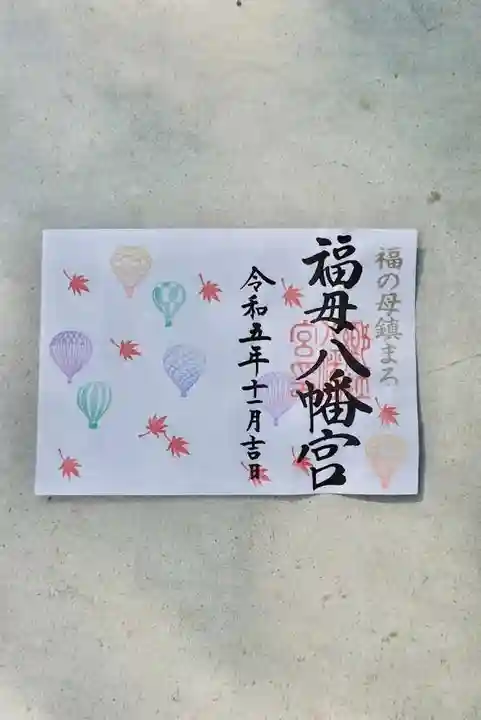 福の母鎮まろ
福母八幡宮
令和五年十一月吉日